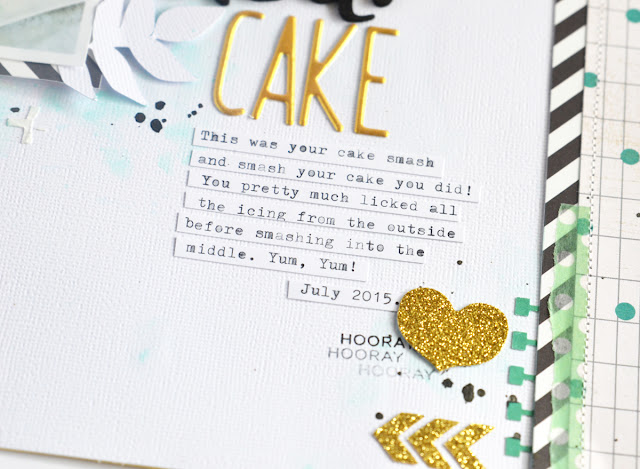 CAKE
This was your cake smash
and smash your cake you did!
You pretty much licked all
the icing from the outside
before smashing into the
middle. Yum, Yum!
July 2015.
HOORAY
HOORAY
HOORAY